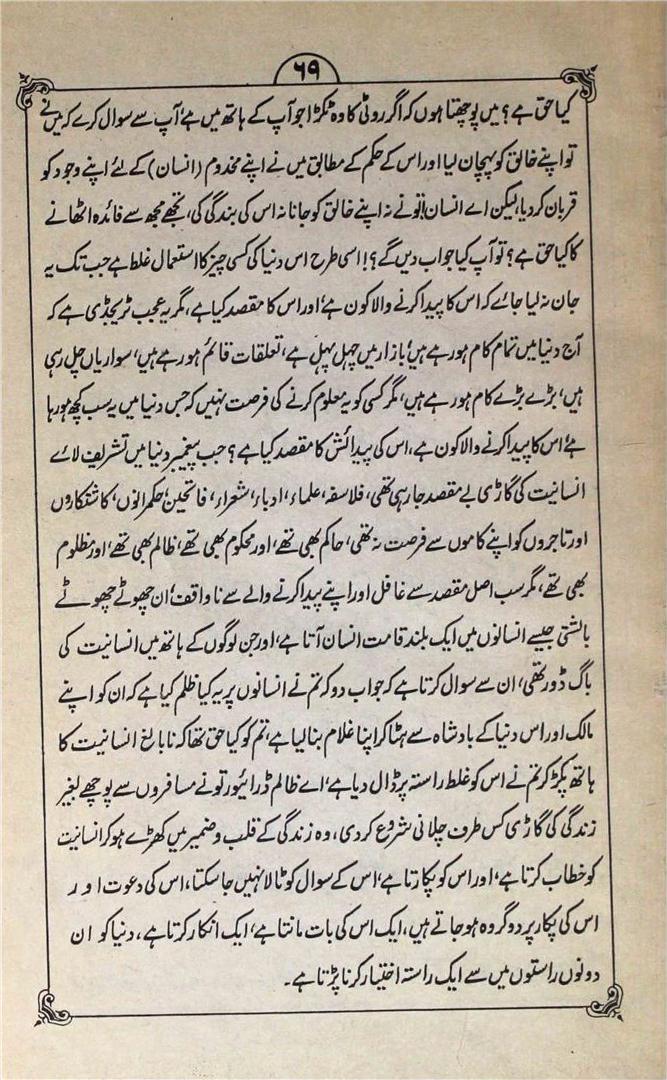 ۶۹
کیا حق ہے؟ میں پوچھتا ہوں کہ اگر روٹی کا وہ ٹکڑا جو آپ کے ہاتھ میں ہے، آپ سے سوال کرے کہ میں نے
تو اپنے خالق کو پہچان لیا اور اس کے حکم کے مطابق میں نے اپنے مخدوم (انسان) کے لئے اپنے وجود کو
قربان کر دیا، لیکن اے انسان! تو نے نہ اپنے خالق کو جانا نہ اس کی بندگی کی، تجھے مجھ سے فائدہ اٹھانے
کا کیا حق ہے؟ تو آپ کیا جواب دیں گے؟! اسی طرح اس دنیا کی کسی چیز کا استعمال غلط ہے جب تک یہ
جان نہ لیا جائے کہ اس کا پیدا کرنے والا کون ہے، اور اس کا مقصد کیا ہے، مگر یہ عجب ٹریجڈی ہے کہ
آج دنیا میں تمام کام ہو رہے ہیں، بازار میں چہل پہل ہے، تعلقات قائم ہو رہے ہیں، سواریاں چل رہی
ہیں، بڑے بڑے کام ہو رہے ہیں، مگر کسی کو یہ معلوم کرنے کی فرصت نہیں کہ جس دنیا میں یہ سب کچھ ہو رہا
ہے، اس کا پیدا کرنے والا کون ہے، اس کی پیدائش کا مقصد کیا ہے؟ جب پیغمبر دنیا میں تشریف لائے
انسانیت کی گاڑی بے مقصد جا رہی تھی، فلاسفہ، علماء، ادباء، شعراء، فاتحین، حکمرانوں، کاشتکاروں
اور تاجروں کو اپنے کاموں سے فرصت نہ تھی، حاکم بھی تھے، اور محکوم بھی تھے، ظالم بھی تھے، اور مظلوم
بھی تھے، مگر سب اصل مقصد سے غافل اور اپنے پیدا کرنے والے سے ناواقف، ان چھوٹے چھوٹے
بالشتی جیسے انسانوں میں ایک بلند قامت انسان آتا ہے، اور جن لوگوں کے ہاتھ میں انسانیت کی
باگ ڈور تھی، ان سے سوال کرتا ہے کہ جواب دو کہ تم نے انسانوں پر یہ کیا ظلم کیا ہے کہ ان کو اپنے
مالک اور اس دنیا کے بادشاہ سے ہٹا کر اپنا غلام بنا لیا ہے، تم کو کیا حق تھا کہ نابالغ انسانیت کا
ہاتھ پکڑ کر تم نے اس کو غلط راستہ پر ڈال دیا ہے، اے ظالم ڈرائیور تو نے مسافروں سے پوچھے بغیر
زندگی کی گاڑی کس طرف چلانی شروع کر دی، وہ زندگی کے قلب و ضمیر میں کھڑے ہو کر انسانیت
کو خطاب کرتا ہے، اور اس کو پکارتا ہے، اس کے سوال کو ٹالا نہیں جا سکتا، اس کی دعوت اور
اس کی پکار پر دو گروہ ہو جاتے ہیں، ایک اس کی بات مانتا ہے، ایک انکار کرتا ہے، دنیا کو ان
دونوں راستوں میں سے ایک راستہ اختیار کرنا پڑتا ہے۔